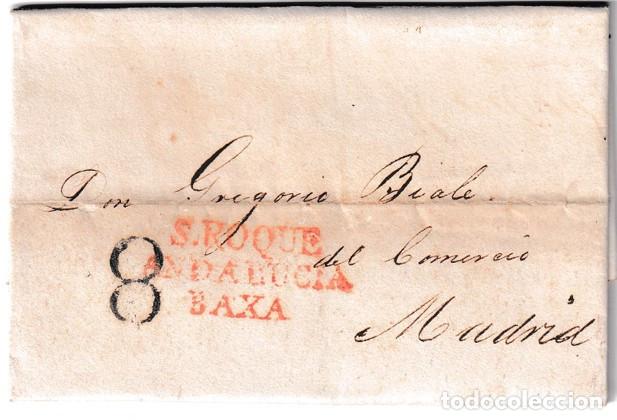 Don Gregorio Biale.
S.ROQUE
ANDALUCIA
BAXA
8
del Comercio
Madrid
todocoleccion